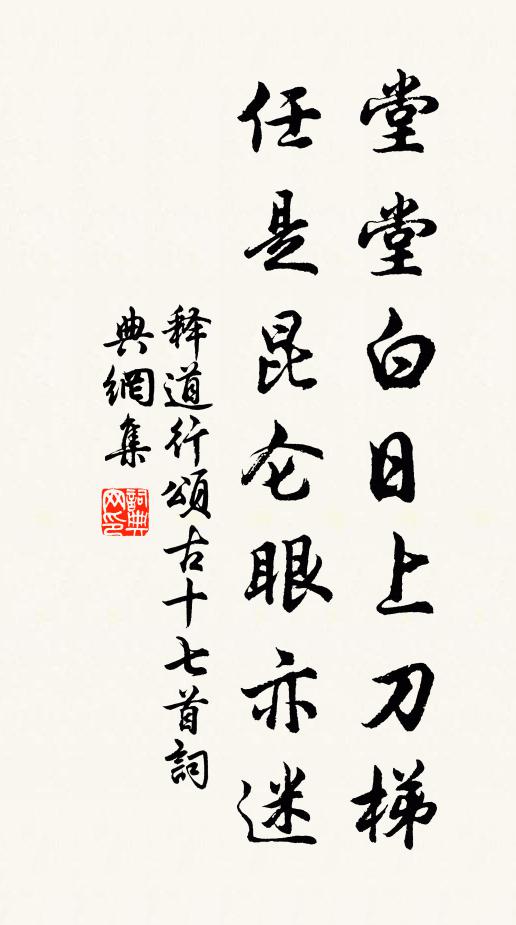 堂堂白日上刀梯
任是昆仑眼亦迷
释道行頌古十七首詞
典網集
詞典網印